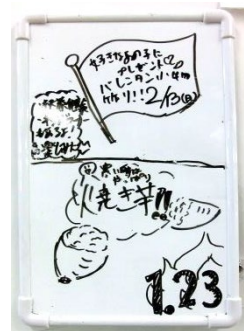 好きなあの子に
プレゼント♡
バレンタイン小物
作り!!2/13(日)
あるよ!
寒い時は
やっぱり
焼き芋!!
1.23